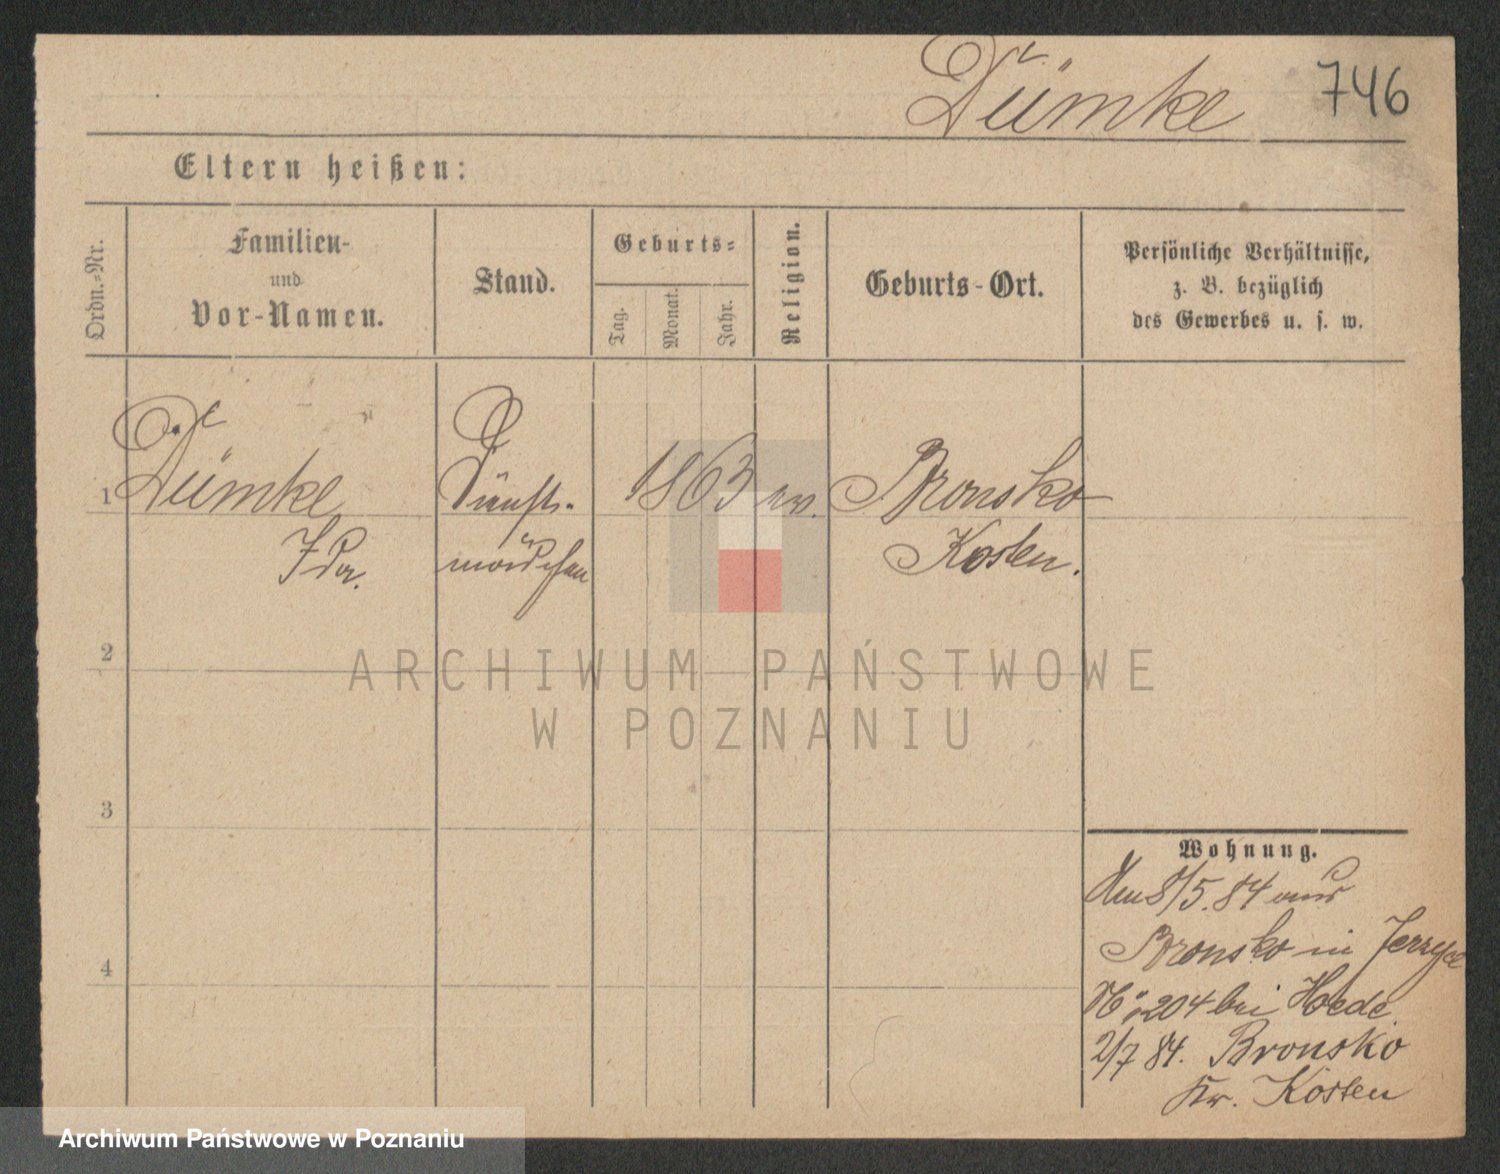 Dümke 746
Eltern heißen:
Ordn.-Nr.
Familien-
und
Vor-Namen.
Stand.
Geburts-
Tag.
Monat.
Jahr.
Religion.
Geburts-Ort.
Persönliche Verhältnisse,
z. B. bezüglich
des Gewerbes u. s. w.
1 Dümke Dienst- 1863 ev. Bronsko
Ida. mädchen Kosten.
2
3
4
ARCHIWUM PAŃSTWOWE
W POZNANIU
Wohnung.
Den 8/5. 84 aus
Bronsko in Jerzyce
No 204 bei Hoede
2/7 84. Bronsko
Kr. Kosten
Archiwum Państwowe w Poznaniu